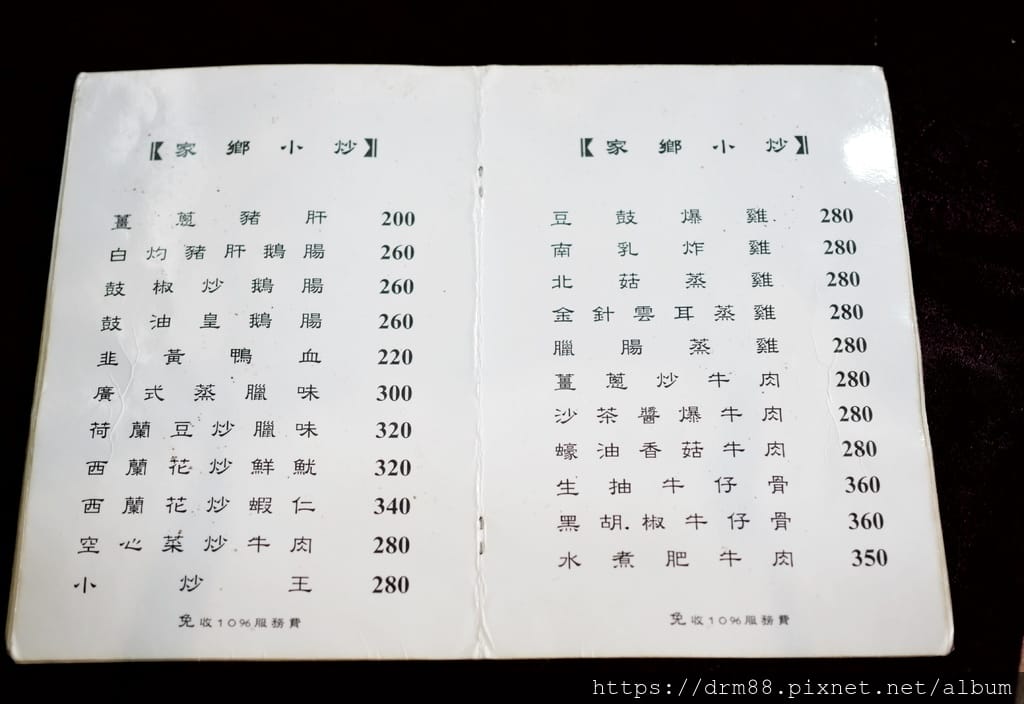 【家鄉小炒】
薑蔥豬肝 200
白灼豬肝鵝腸 260
鼓椒炒鵝腸 260
鼓油皇鵝腸 260
韭黃鴨血 220
廣式蒸臘味 300
荷蘭豆炒臘味 320
西蘭花炒鮮魷 320
西蘭花炒蝦仁 340
空心菜炒牛肉 280
小炒王 280
免收10%服務費
【家鄉小炒】
豆鼓爆雞 280
南乳炸雞 280
北菇蒸雞 280
金針雲耳蒸雞 280
臘腸蒸雞 280
薑蔥炒牛肉 280
沙茶醬爆牛肉 280
蠔油香菇牛肉 280
生抽牛仔骨 360
黑胡椒牛仔骨 360
水煮肥牛肉 350
免收10%服務費
https://drm88.pixnet.net/album